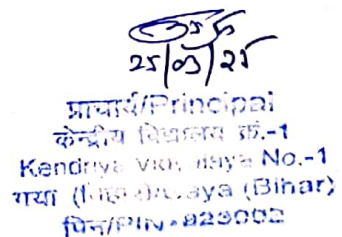 25/03/25
प्राचार्य/Principal
केन्द्रीय विद्यालय क्रं.-1
Kendriya Vidyalaya No.-1
गया (बिहार)/Gaya (Bihar)
पिन/PIN-823002